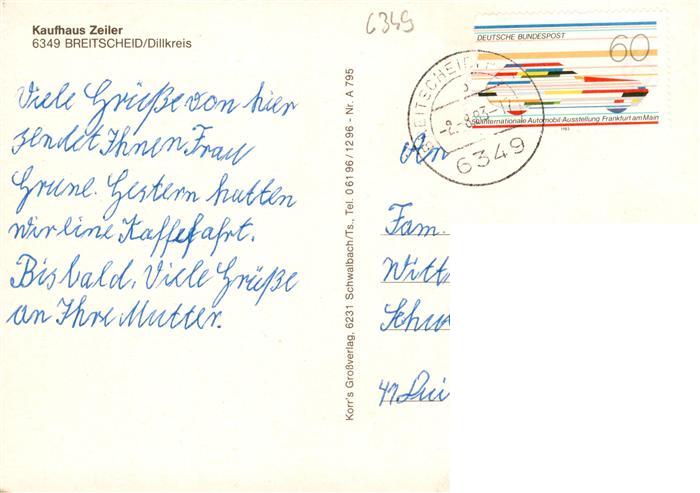 Kaufhaus Zeiler
6349 BREITSCHEID/Dillkreis
6349
DEUTSCHE BUNDESPOST
60
Internationale Automobil-Ausstellung Frankfurt am Main
1983
BREITSCHEID
-2.-8.83-17
6349
Viele Grüße von hier
sendet Ihnen Frau
Grunl. Gestern hatten
wir eine Kaffefahrt.
Bis bald. Viele Grüße
an Ihre Mutter.
Korr's Großverlag, 6231 Schwalbach/Ts., Tel. 0 61 96 / 12 96 - Nr. A 795
An
Fam.
Witt
Schw
41 Dui